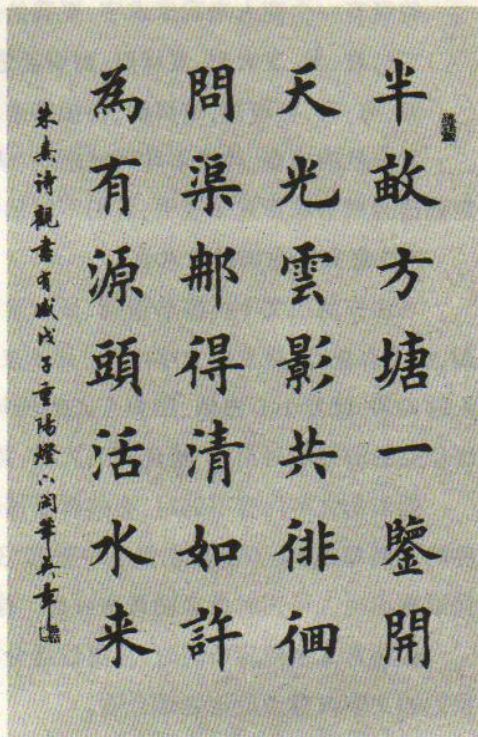 半畝方塘一鑒開
天光雲影共徘徊
問渠那得清如許
為有源頭活水来
朱熹詩觀書有感戊子重陽燈下閑筆英章